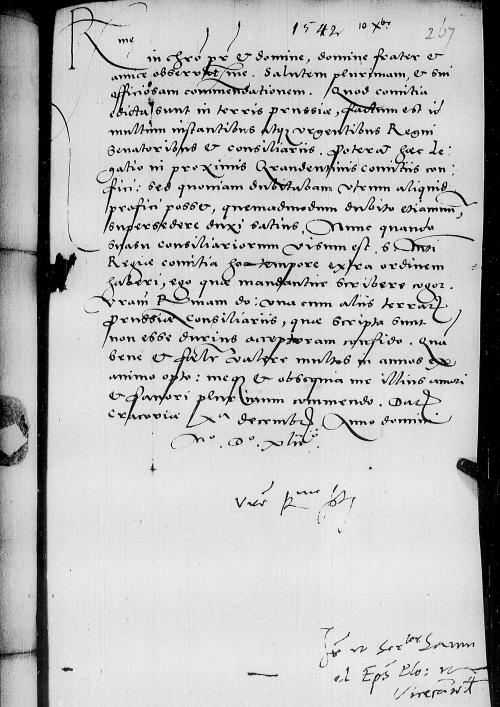 1542 10 Xbr 267
R me
in chro pr et domine, domine frater et
amice observme. Salutem plurimam, et sui
officiosam commendationem. Quod comitia
edicta sunt in terris prussiæ, factum est id
multum instantibus atq urgentibus Regni
Senatoribus et consiliariis. Poterat hæc le-
gatio in proximis Grandentinis comitiis con-
fici: sed quoniam dubitabam utrum aliquid
profici posset, quemadmodum dubito etiamnu,
supersedere duxi satius. Nunc quando
suasu consiliariorum visum est S. Mti
Regiæ comitia hoc tempore extra ordinem
haberi, ego quæ mandantur scribere cogor.
Vram R mam do: una cum aliis terrar
Prussiæ Consiliariis, quæ scripta sunt
non esse durius accepturam confido. Qua
bene et fælr valere multos in annos ex
animo opto: meq et obsequia me illius amori
et favori plurimum commendo. Dat
Cracoviæ Xa decembr Anno domini
Mo. Do. xlijo.
Vre Rme
Eps Plo: